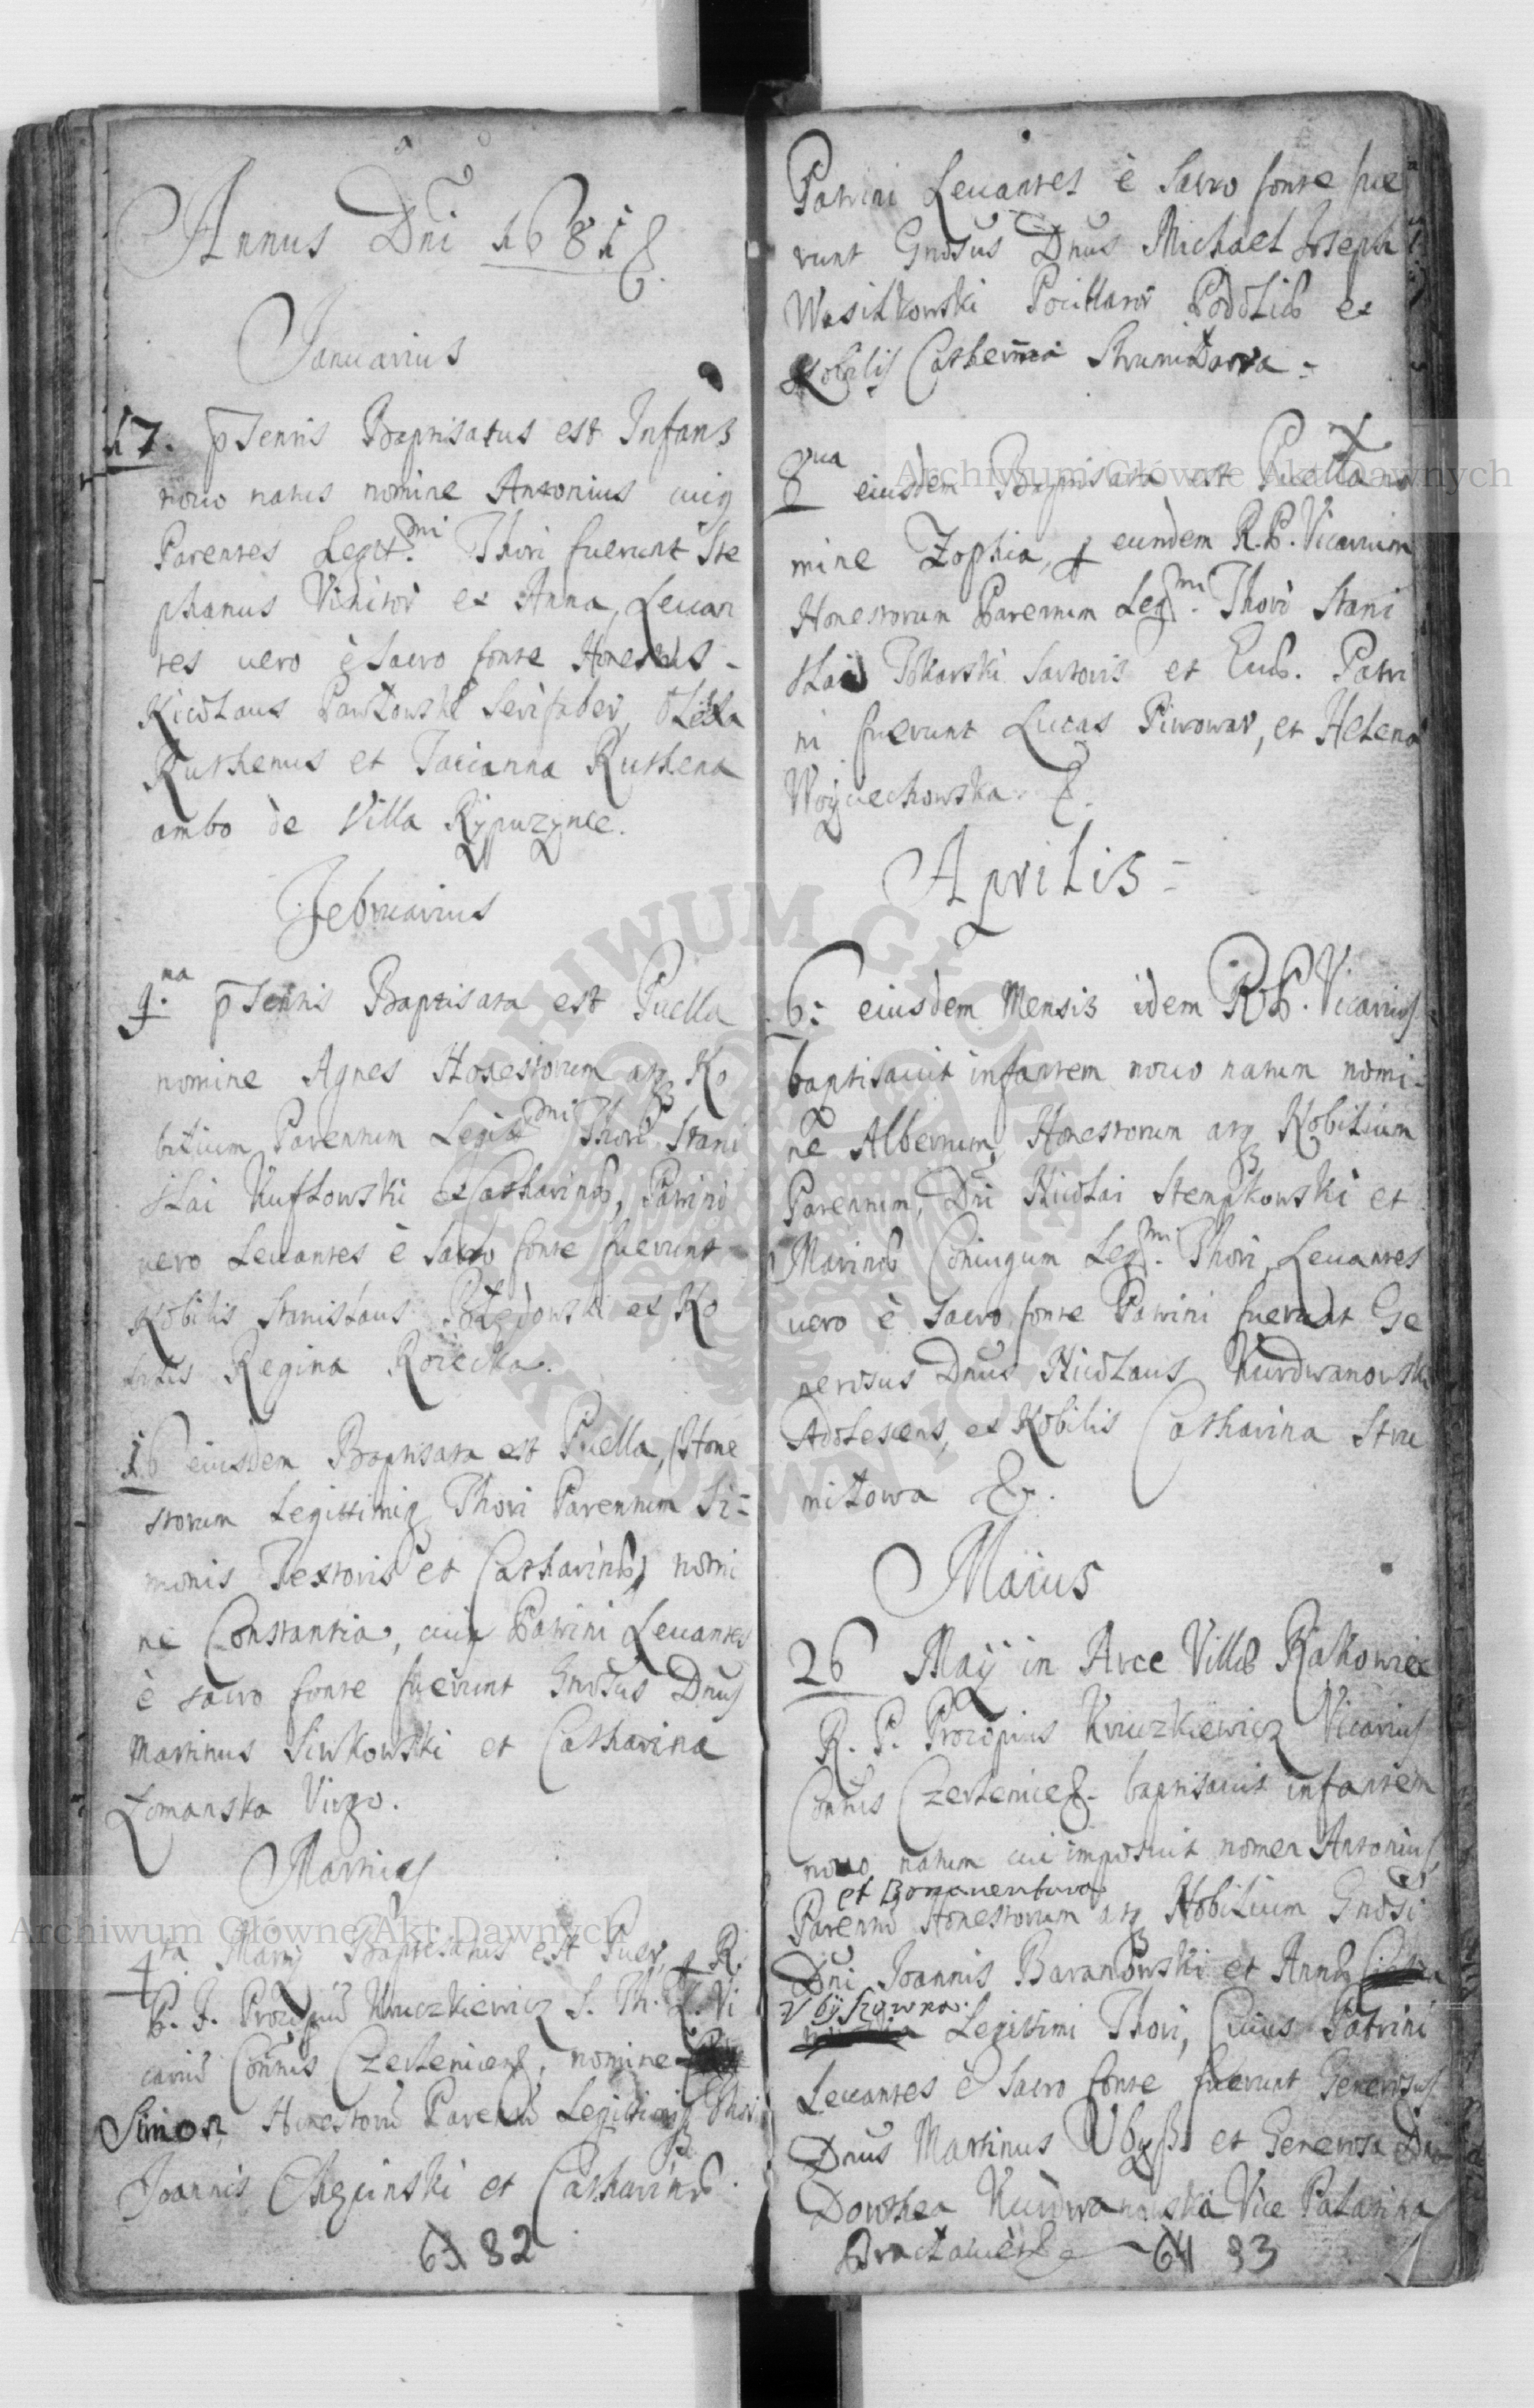 Annus Dni 1681
Januarius
17. pSentis Baptisatus est Infans
nouo natus nomine Antonius cuiq
Parentes Legit.mi Thori fuerunt Ste
phanus Vinitor et Anna, Leuan
tes uero è Sacro fonte Honestus -
Nicolaus Pawlowski Serifaber,
Ruthenus et Tacianna Ruthena
ambo de Villa Rypuzynce.
Februarius
9.na pSentis Baptisata est Puella
nomine Agnes Honestorum atq No
bilium Parentum Legit.mi Thori Stani
slai Kuflowski et Catharinae, Patrini
uero Leuantes è Sacro fonte fuerunt
Nobilis Stanislaus et No
bilis Regina Roiecka.
16 eiusdem Baptisata est Puella, Hone
storum Legittimiq Thori Parentum Si=
monis Textoris et Catharinae, nomi
ne Constantia, cuiq Patrini Leuantes
è sacro fonte fuerunt Gnosus Dnus
Martinus Siwkowski et Catharina
Lomanska Virgo.
Martius
4ta Martij Baptisatus est Puer, R.
P. F. Procopiu Kruczkiewicz S. Th. L. Vi
cariu Conuus Czerleniens, nomine
Simon, Honestoru Parentu Legitimiq Thori
Joannis Checinski et Catharinae.
63 82
Patrini Leuantes è Sacro fonte fue
runt Gnosus Dnus Michael Joseph
Wasilkowski Pocillator Podoliae et
Nobilis Catherina Strumilowa -
8ua eiusdem Baptisata est Puella no
mine Zophia, eundem R.P. Vicarium
Honestorum Parentum Leg.mi Thori Stani
slai Tokarski Sartoris et Euae. Patri
ni fuerunt Lucas Piwowar, et Helena
Woyciechowska.
Aprilis -
6: eiusdem Mensis idem R.P. Vicarius
baptisauit infantem nouo natum nomi-
ne Albertum, Honestorum atq Nobilium
Parentum, Dni Nicolai Stempkowski et
Marinae Coniugum Leg.mi Thori, Leuantes
uero è Sacro fonte Patrini fuerunt Ge
nerosus Dnus Nicolaus Kurdwanowski
Adolescens, et Nobilis Catharina Stru
milowa &.
Maius
26 Maij in Arce Villae Rakowiec
R. P. Procopius Kruczkiewicz Vicarius
Conuus Czerleniens. baptisauit infantem
nouo natum cui imposuit nomen Antonius
et Bonauentura
Parentu Honestorum atq Nobilium Gnosi
Dni Joannis Baranowski et Annae
Vbyszowna.
Legittimi Thori, Cuius Patrini
Leuantes è Sacro fonte fuerunt Generosus
Dnus Martinus Vbysz et Generosa Dna
Dorothea Kurdwanowska Vice Palatina
Braclauiens 64 83
Archiwum Główne Akt Dawnych
Archiwum Główne Akt Dawnych
ARCHIWUM GŁÓWNE AKT DAWNYCH